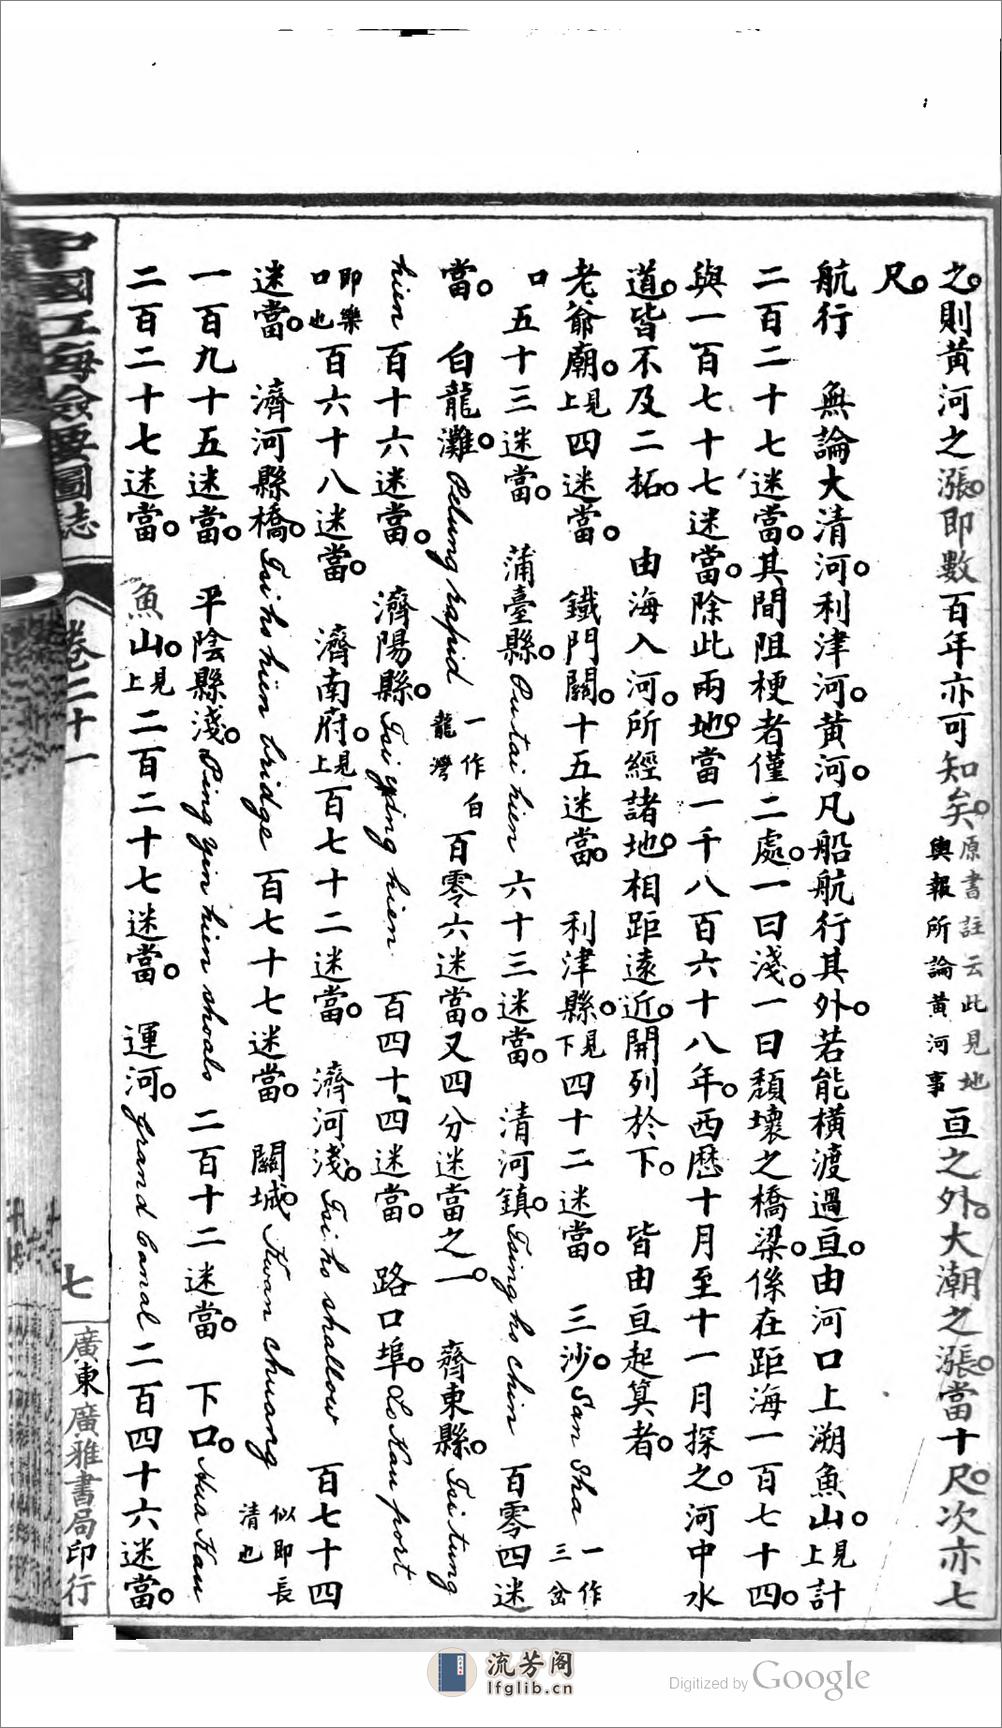 之則黃河之漲即數百年亦可知矣。原書註云此見地輿報所論黃河事亘之外大潮之漲當十尺次亦七
尺。
航行　無論大清河。利津河。黃河。凡船航行其外。若能橫渡過亘。由河口上溯魚山。見上計
二百二十七迷當。其間阻梗者僅二處。一曰淺。一曰頹壞之橋梁。係在距海一百七十四。
與一百七十七迷當。除此兩地。當一千八百六十八年。西歷十月至十一月探之。河中水
道。皆不及二拓。　由海入河。所經諸地。相距遠近。開列於下。　皆由亘起算者。
老爺廟。見上四迷當。　鐵門關。十五迷當。　利津縣。見下四十二迷當。　三沙。San Sha 一作三岔
口　五十三迷當。　蒲臺縣。Putai hien 六十三迷當。　清河鎮。Tsing ho chin 百零四迷
當。　白龍灘。Pelung rapid 一作白龍灣　百零六迷當。又四分迷當之一。　齊東縣。Tsi tung
hien 百十六迷當。　濟陽縣。Tsi ying hien 百四十四迷當。　路口埠。Lo Kau port
即樂口也　百六十八迷當。　濟南府。見上百七十二迷當。　濟河淺。Tsi ho shallow 百七十四
迷當。　濟河縣橋。Tsi ho hien bridge 百七十七迷當。　關城。Kwan chuang 似即長清也
一百九十五迷當。　平陰縣淺。Ping yin hien shoals 二百十二迷當。　下口。Hua Kau
二百二十七迷當。　魚山。見上二百二十七迷當。　運河。Grand Canal 二百四十六迷當。
中國江海險要圖誌　卷二十一　七　廣東廣雅書局印行
流芳阁
lfglib.cn
Digitized by Google